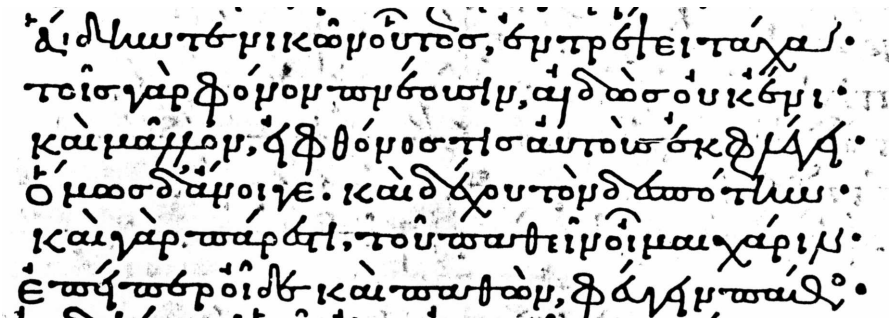 ἅιδην τε νικῶν οὗτος, ἐντρέψει τάχα·
τοῖς γὰρ φόνον πνέουσιν, αἰδὼς οὐκ ἔνι·
καὶ μᾶλλον, εἰ φθόνος τίς αὐτοὺς ἐκφλέγει·
ὅμως δ' ἄνοιγε. καὶ δέχου τὸν δεσπότην·
καὶ γὰρ πάρεστι, τοῦ παθεῖν οἶμαι χάριν·
ἐπείπερ οἶδε καὶ παθὼν, φεύγειν πάθος·